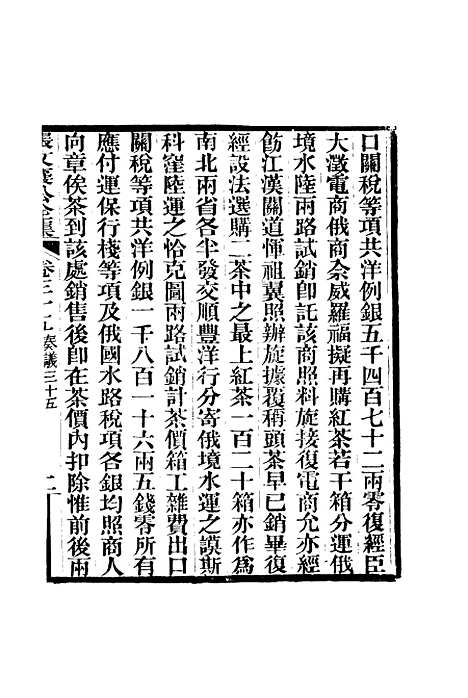 口關稅等項共洋例銀五千四百七十二兩零復經臣
大澂電商俄商佘威羅福擬再購紅茶若干箱分運俄
境水陸兩路試銷卽託該商照料旋接復電商允亦經
飭江漢關道惲祖翼照辦旋據覆稱頭茶早已銷畢復
經設法選購二茶中之最上紅茶一百二十箱亦作爲
南北兩省各半發交順豐洋行分寄俄境水運之謨斯
科窪陸運之恰克圖兩路試銷計茶價箱工雜費出口
關稅等項共洋例銀一千八百一十六兩五錢零所有
應付運保行棧等項及俄國水路稅項各銀均照商人
向章俟茶到該處銷售後卽在茶價內扣除惟前後兩
張文襄公全集 卷三十五 奏議三十五 二